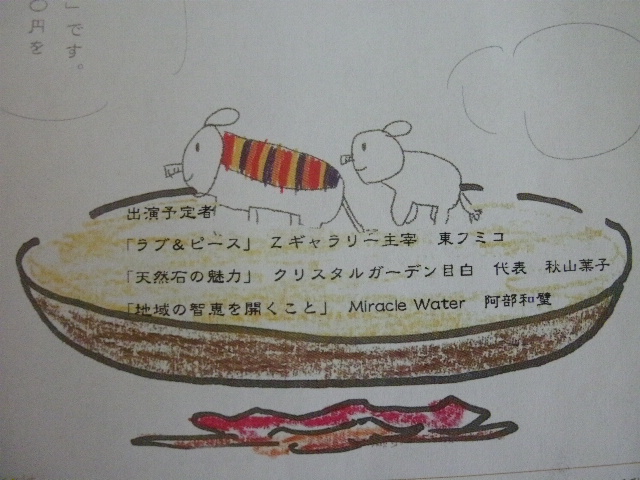 」です。
〇円を
出演予定者
「ラブ&ピース」 Zギャラリー主宰 東フミコ
「天然石の魅力」 クリスタルガーデン目白 代表 秋山葉子
「地域の智恵を開くこと」 Miracle Water 阿部和璧